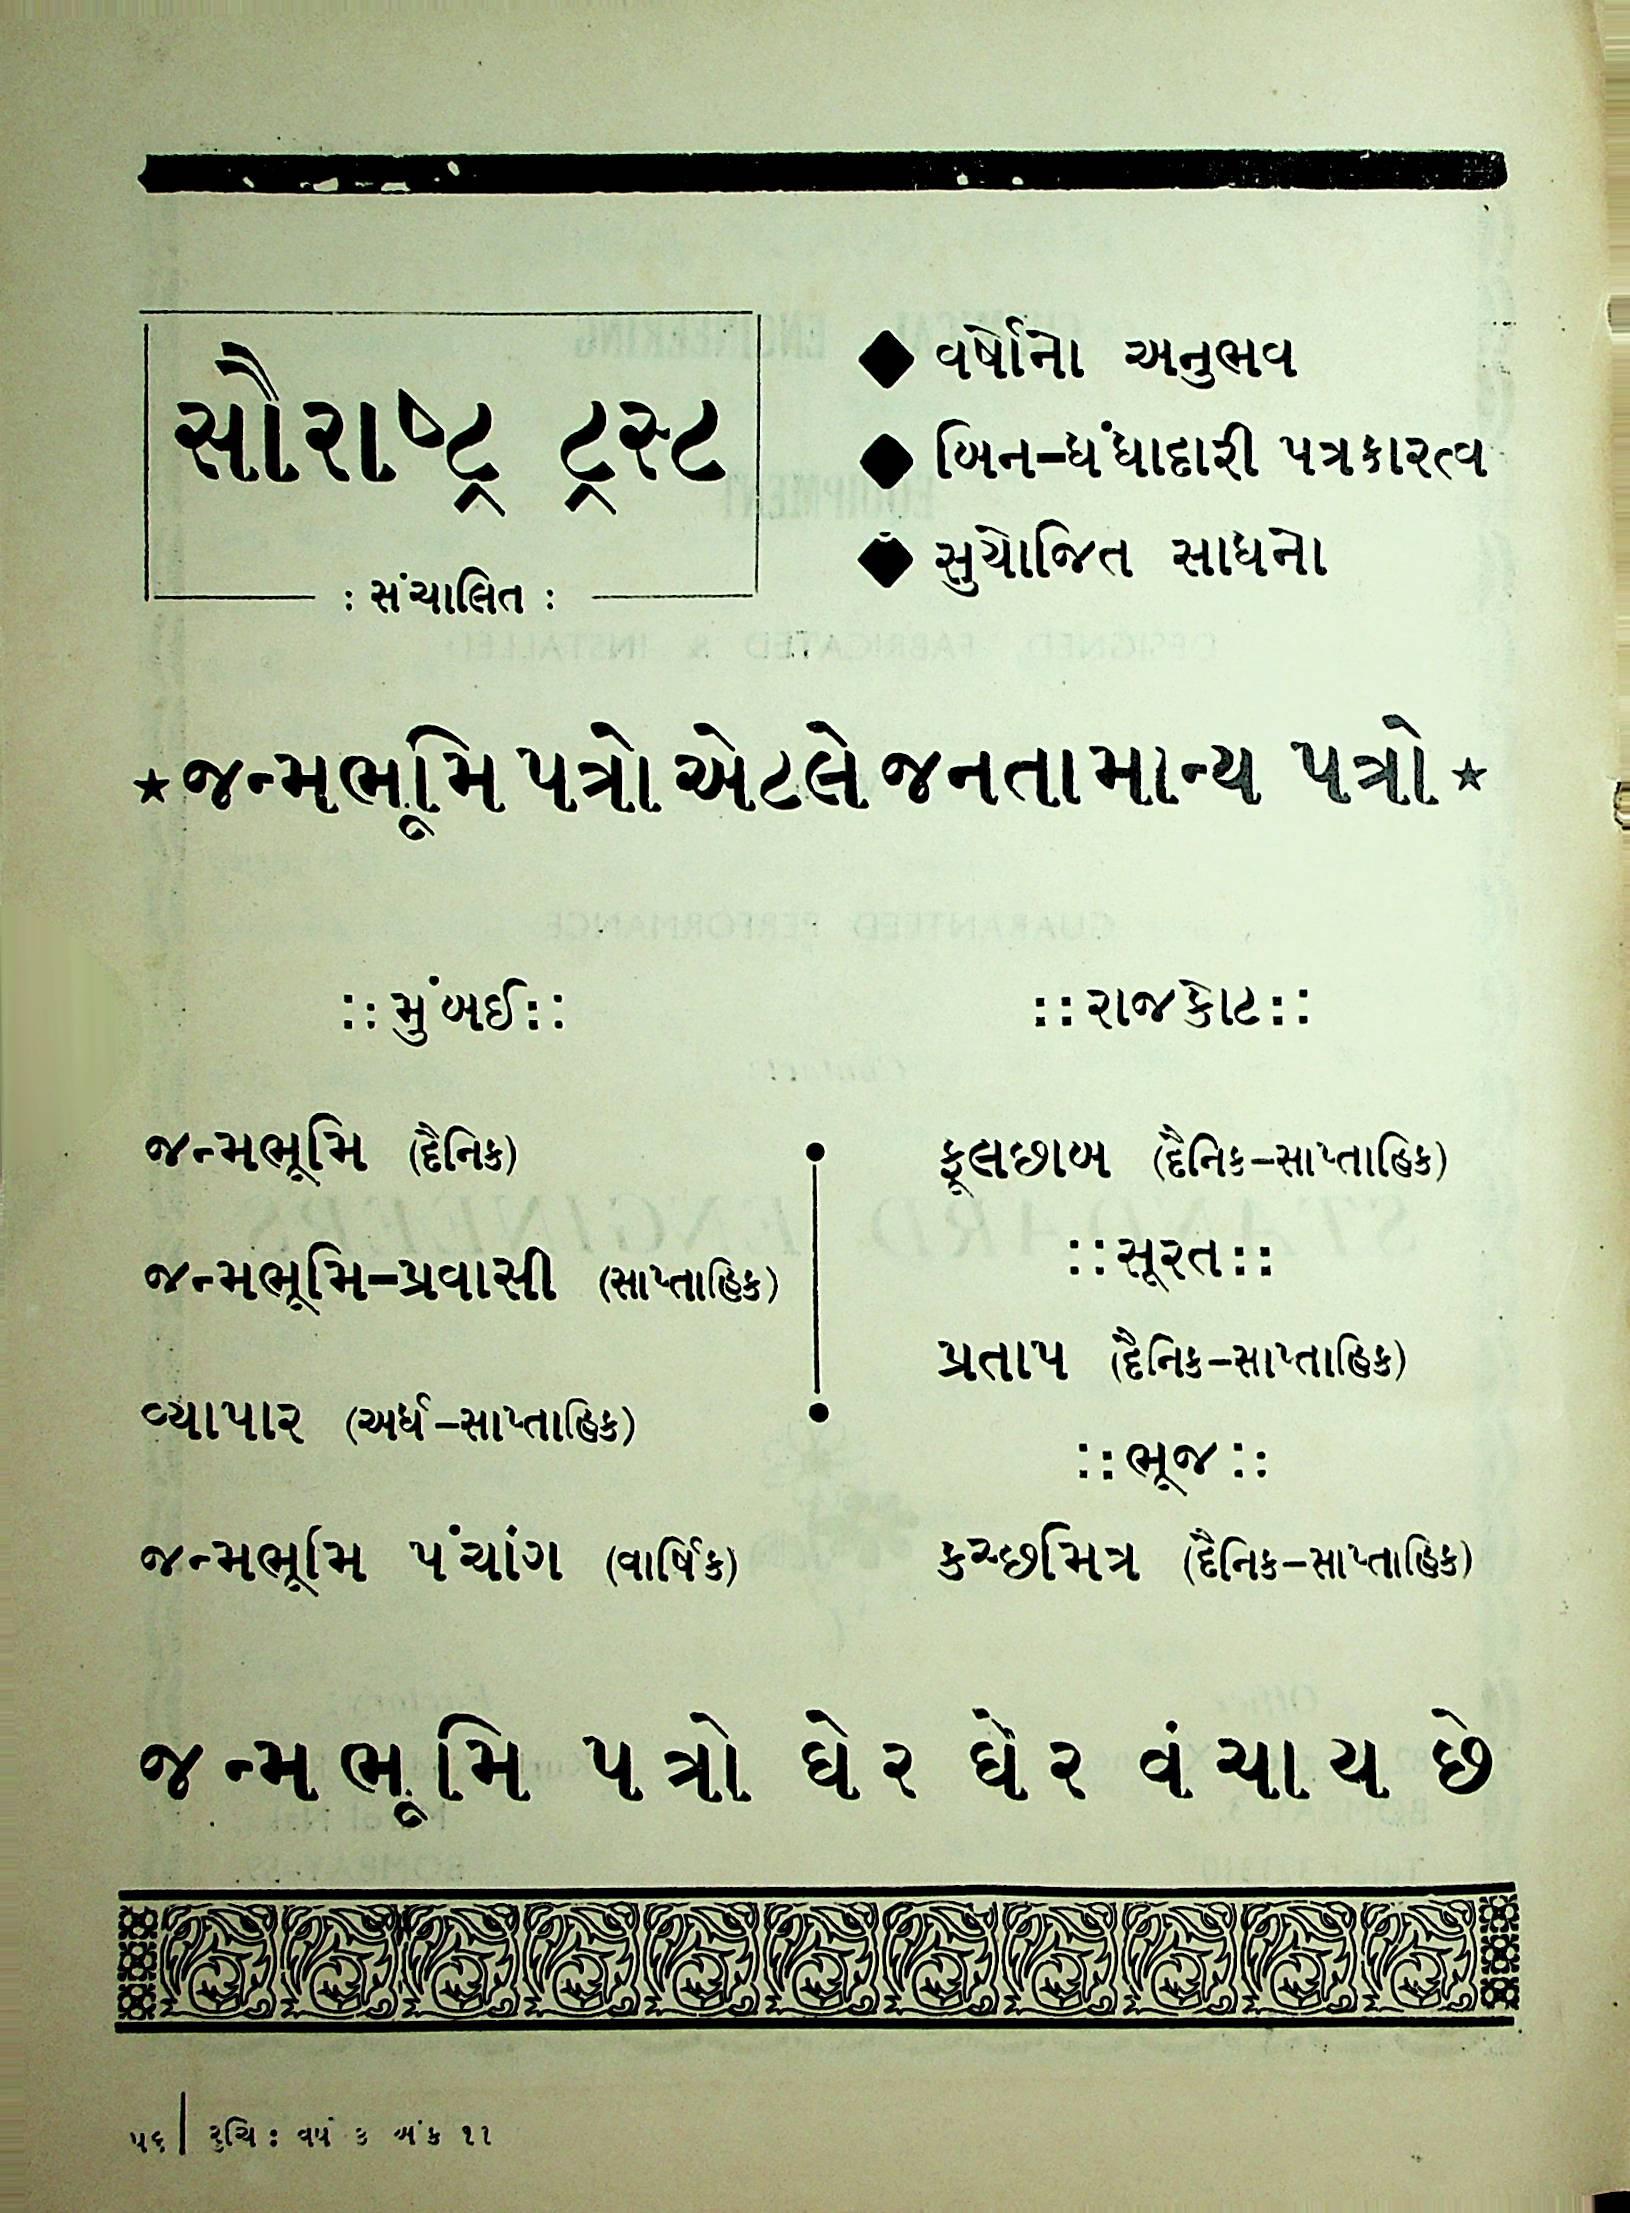 સૌરાષ્ટ્ર ટ્રસ્ટ
: સંચાલિત :
◆ વર્ષોનો અનુભવ
◆ બિન-ધંધાદારી પત્રકારત્વ
◆ સુયોજિત સાધનો
★ જન્મભૂમિ પત્રો એટલે જનતામાન્ય પત્રો ★
::મુંબઈ::
જન્મભૂમિ (દૈનિક)
જન્મભૂમિ-પ્રવાસી (સાપ્તાહિક)
વ્યાપાર (અર્ધ-સાપ્તાહિક)
જન્મભૂમિ પંચાંગ (વાર્ષિક)
::રાજકોટ::
ફૂલછાબ (દૈનિક-સાપ્તાહિક)
::સૂરત::
પ્રતાપ (દૈનિક-સાપ્તાહિક)
::ભૂજ::
કચ્છમિત્ર (દૈનિક-સાપ્તાહિક)
જન્મભૂમિ પત્રો ઘેર ઘેર વંચાય છે
૫૬ | રુચિ : વર્ષ ૩ અંક ૧૧